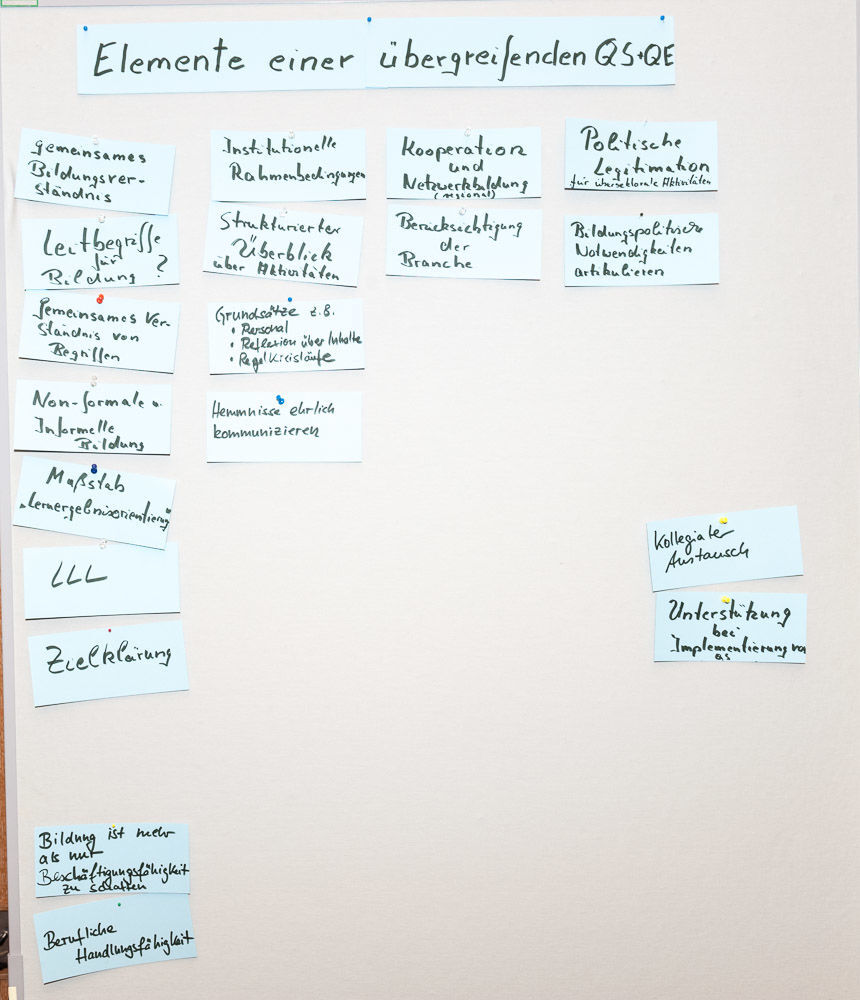 Elemente einer übergreifenden QS+QE
gemeinsames
Bildungsver-
ständnis
Leitbegriffe
für
Bildung ?
Gemeinsames Ver-
ständnis von
Begriffen
Non-formale u.
Informelle
Bildung
Maßstab
"Lernergebnisorientierung"
LLL
Zielklärung
Bildung ist mehr
als nur
Beschäftigungsfähigkeit
zu schaffen
Berufliche
Handlungsfähigkeit
Institutionelle
Rahmenbedingungen
Strukturierter
Überblick
über Aktivitäten
Grundsätze z.B.
• Personal
• Reflexion über Inhalte
• Regelkreisläufe
Hemmnisse ehrlich
kommunizieren
Kooperation
und
Netzwerkbildung
(regional)
Berücksichtigung
der
Branche
Politische
Legitimation
für übersektorale Aktivitäten
Bildungspolitische
Notwendigkeiten
artikulieren
Kollegialer
Austausch
Unterstützung
bei
Implementierung von
QS